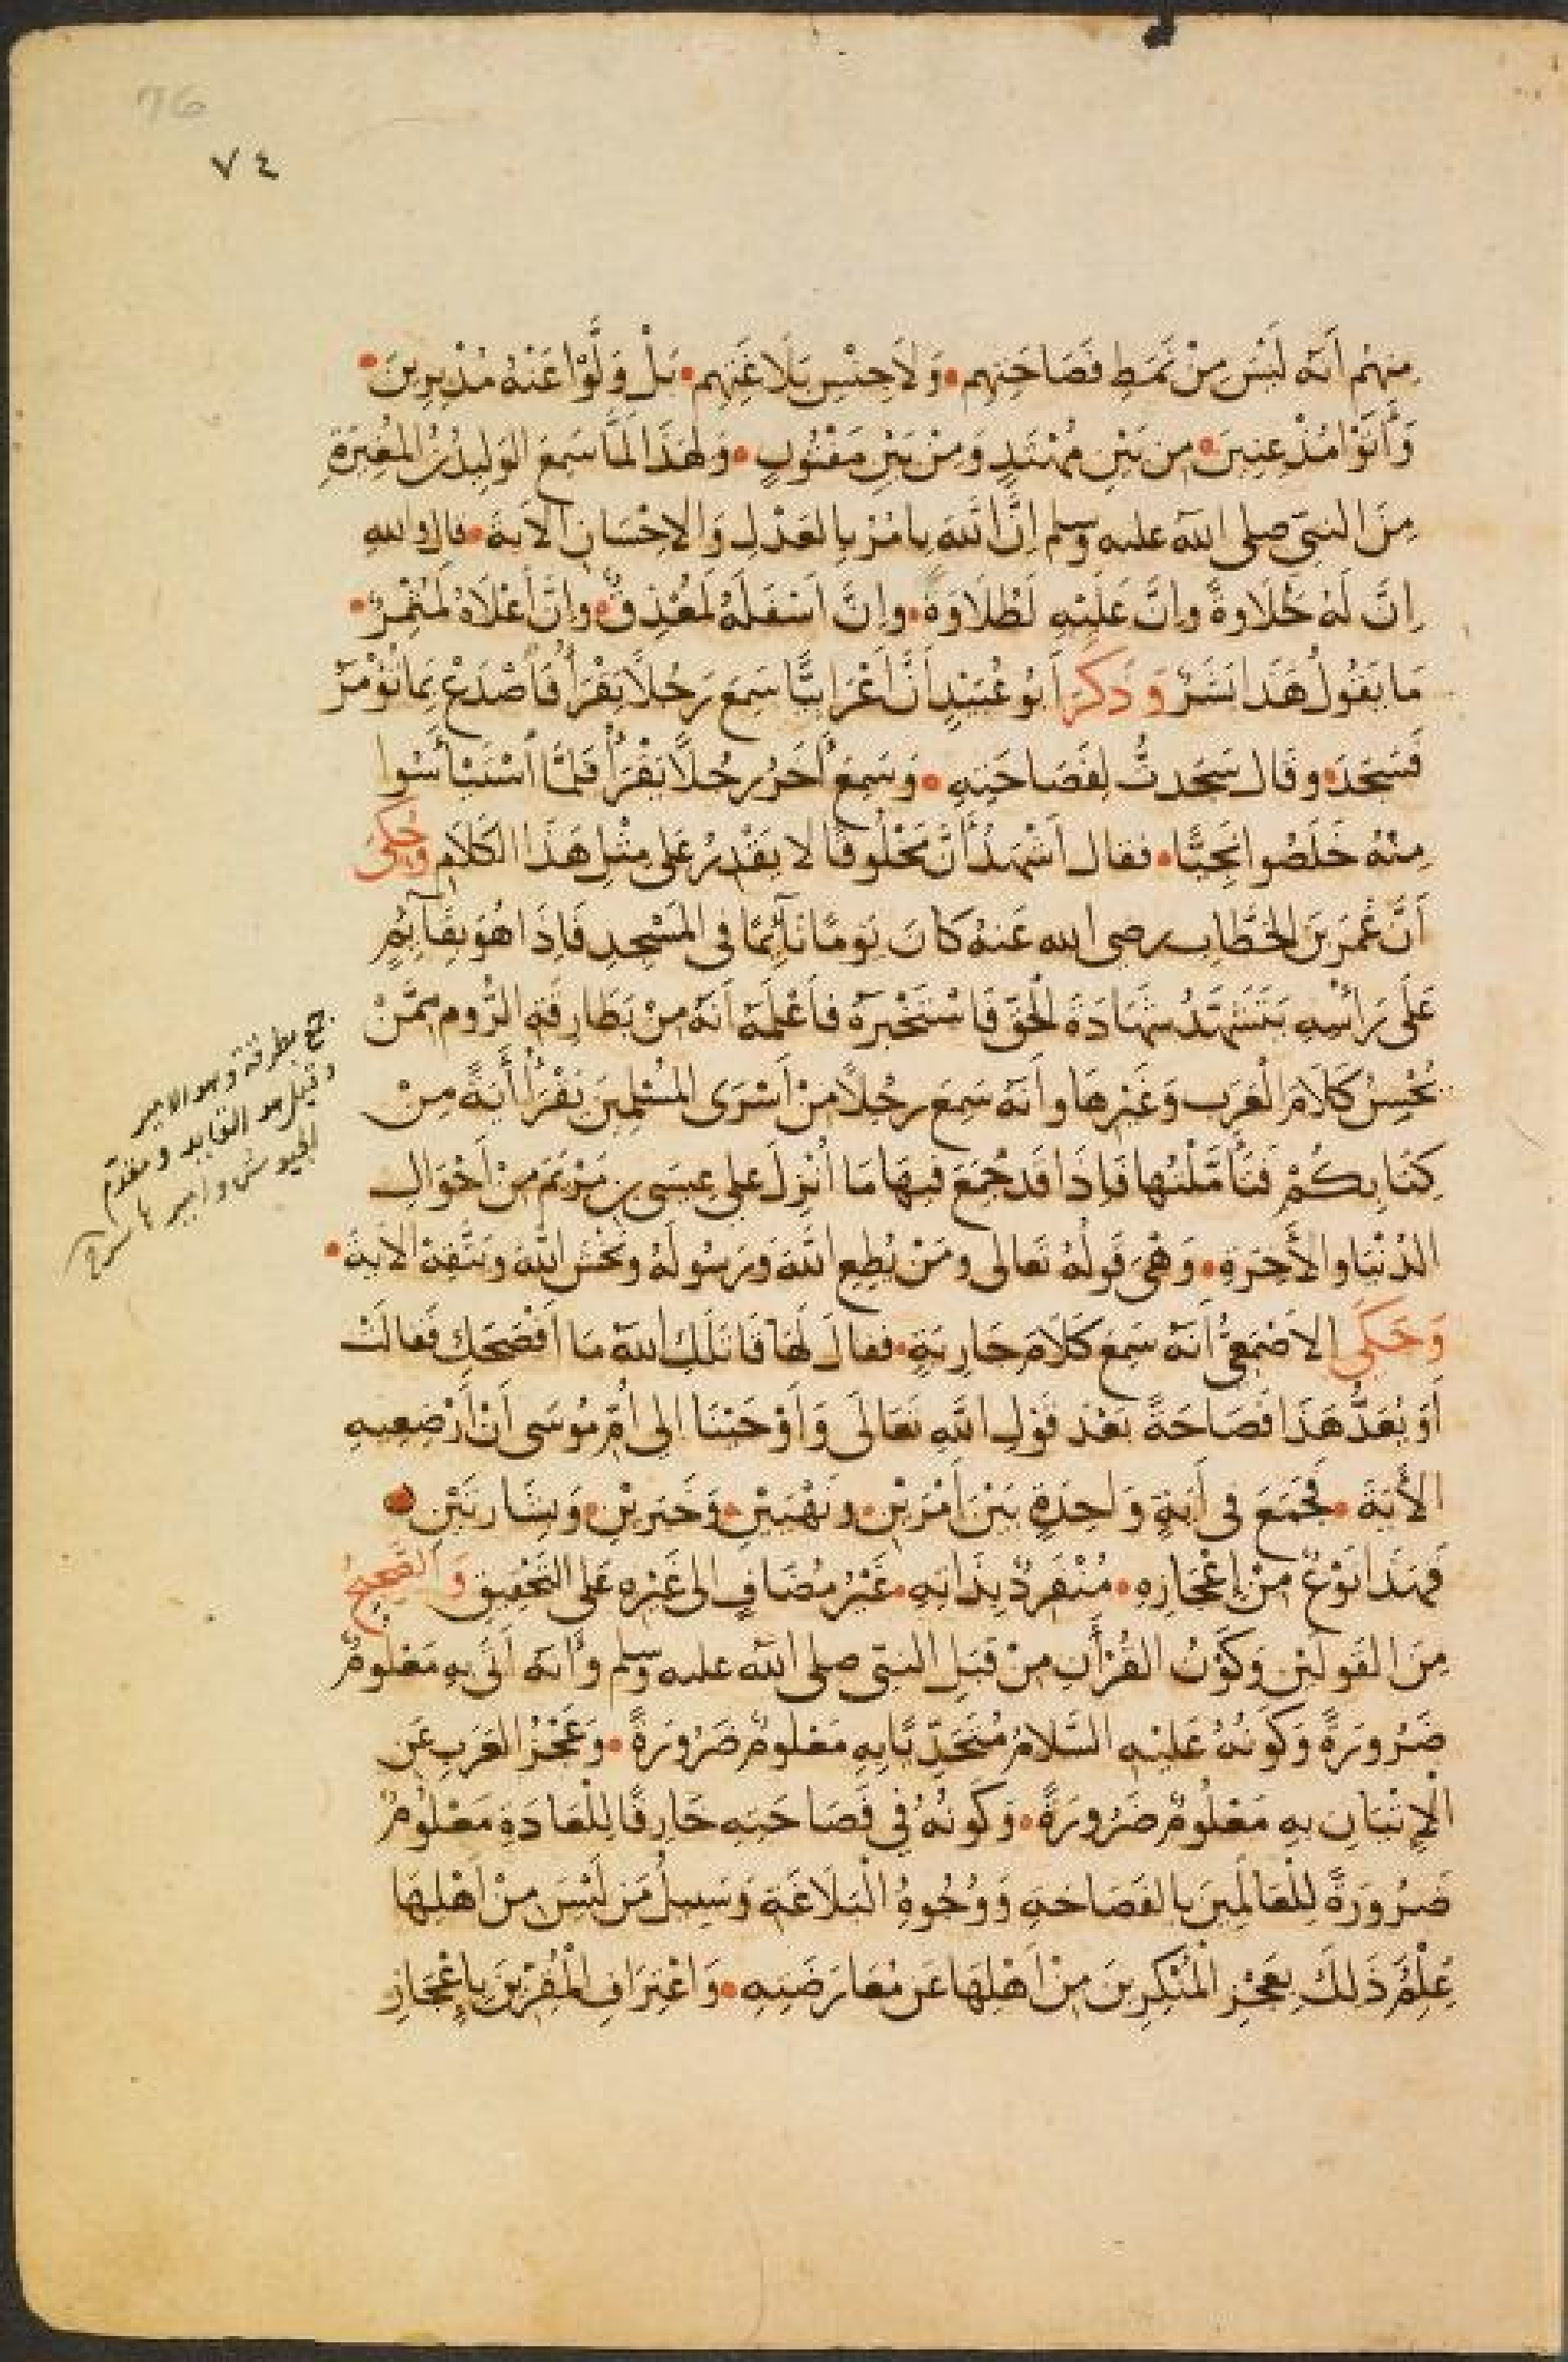 76
٧٤
مِنْهُمْ أَنَّهُ لَيْسَ مِنْ نَمَطِ فَصَاحَتِهِم • وَلَا جِنْسِ بَلَاغَتِهِم • بَلْ وَلَّوْا عَنْهُ مُدْبِرِينَ •
وَأَتَوْا مُذْعِنِينَ • مِن بَيْنِ مُهْتَدٍ وَمِنْ بَيْنِ مَفْتُونٍ • وَلِهَذَا لَمَّا سَمِعَ الوَلِيدُ بْنُ المُغِيرَةِ
مِنَ النَّبِيِّ صلى الله عليه وسلم إِنَّ اللَّهَ يَامُرُ بِالعَدْلِ وَالإِحْسَانِ الآيَةَ • قال والله
إِنَّ لَهُ حَلَاوةً وإِنَّ عَلَيْهِ لَطُلَاوَةً • وإِنَّ أَسْفَلَهُ لَمُغْذِقٌ • وإِنَّ أَعْلَاهُ لَمُثْمِرٌ •
مَا يَقُولُ هَذَا بَشَرٌ وَذَكَرَ أَبُو عُبَيْدٍ أَنَّ أَعْرَابِيًّا سَمِعَ رَجُلًا يَقْرَأُ فَاصْدَعْ بِمَا تُؤْمَرْ
فَسَجَدَ • وقَال سَجَدتُّ لِفَصَاحَتِهِ • وَسَمِعَ أَخَرُ رَجُلًا يَقْرَأُ فَلَمَّا اسْتَيْأَسُوا
مِنْهُ خَلَصُوا نَجِيًّا • فقال أَشْهَدُ أَنَّ مَخْلُوقًا لا يَقْدِرُ عَلى مِثْلِ هَذَا الكَلَامِ وحُكِىَ
أَنَّ عُمَرَ بنَ الخَطَّابِ رضي الله عَنهُ كَانَ يَومًا نَائِمًا في المَسْجِدِ فَإِذَا هُوَ بِقَائِمٍ
عَلَى رَأْسِهِ يَتَشَهَّدُ شَهَادَةَ الْحَقِّ فَاسْتَخْبَرَهُ فأَعْلَمَهُ أَنَّهُ مِنْ بَطَارِقَةِ الرُّومِ مِمَّنْ
يُحْسِنُ كَلَامَ الْعَرَبِ وَغَيْرِهَا وأَنَّهُ سَمِعَ رجُلًا مِنْ أَسْرَى المُسْلِمِينَ يَقْرَأُ أَيَةً مِنْ
كِتَابِكُمْ فَتَأَمَّلْتُهَا فَإِذَا قَد جُمِعَ فِيهَا مَا أُنْزِلَ على عِيسَى بنِ مَرْيَمَ مِنْ أَحْوَالِ
الدُّنْيَا وَالأَخِرَةِ • وَهْيَ قَولُهُ تَعَالى ومَنْ يُطِعِ اللَّهَ وَرَسُولَهُ ويَخْشَ اللَّهَ وَيَتَّقِهْ الآيَةَ •
وَحَكَى الأَصْمَعِيُّ أَنَّهُ سَمِعَ كَلَامَ جَارِيَةٍ • فقالَ لَهَا قَاتَلَكِ اللهُ مَا أَفْصَحَكِ فَقَالَتْ
أَوَ يُعَدُّ هَذَا فَصَاحَةً بَعْدَ قَوْلِ اللَّهِ تَعَالَى وَأَوْحَيْنَا إِلى أُمِّ مُوسَى أَنْ أَرْضِعِيهِ
الأَيَةَ • فجَمَعَ في أَيَةٍ وَاحِدَةٍ بَيْنَ أَمْرَيْنِ • ونَهْيَيْنِ • وَخَبَرَيْنِ • وَبِشَارَتَيْنِ •
فَهَذَا نَوْعٌ مِنْ إِعْجَازِهِ • مُنْفَرِدٌ بِذَاتِهِ • غَيْرُ مُضَافٍ إِلى غَيْرِهِ عَلى التَّحْقِيقِ وَالصَّحِيحِ
مِنَ القَولَيْنِ وَكَوْنُ القُرْأَنِ مِنْ قِبَلِ النبيّ صلى الله عليه وسلم وأَنَّهُ أَتَى بِهِ مَعْلُومٌ
ضَرُورَةً وَكَوْنُهُ عَلَيْهِ السَّلامُ مُتَحَدِّيًا بِهِ مَعْلُومٌ ضَرُورَةً • وَعَجْزُ العَرَبِ عَنِ
الْإِتْيَانِ بِهِ مَعْلُومٌ ضَرُورَةً • وَكَوْنُهُ فِي فَصَاحَتِهِ خَارِقًا لِلْعَادَةِ مَعْلُومٌ
ضَرُورَةً لِلْعَالِمِينَ بِالفَصَاحَةِ وَوُجُوهِ الْبَلَاغَةِ وَسَبِيلُ مَن لَيْسَ مِنْ أَهْلِهَا
عِلْمُ ذَلِكَ بِعَجْزِ الْمُنْكِرِينَ مِنْ أَهْلِهَا عَن مُعَارَضَتِهِ • وَاعْتِرَافِ الْمُقِرِّينَ بِإِعْجَازِ
جمع بطرقة وهو الامير
وقيل هو القايد ومقدم
الجيوش وامير